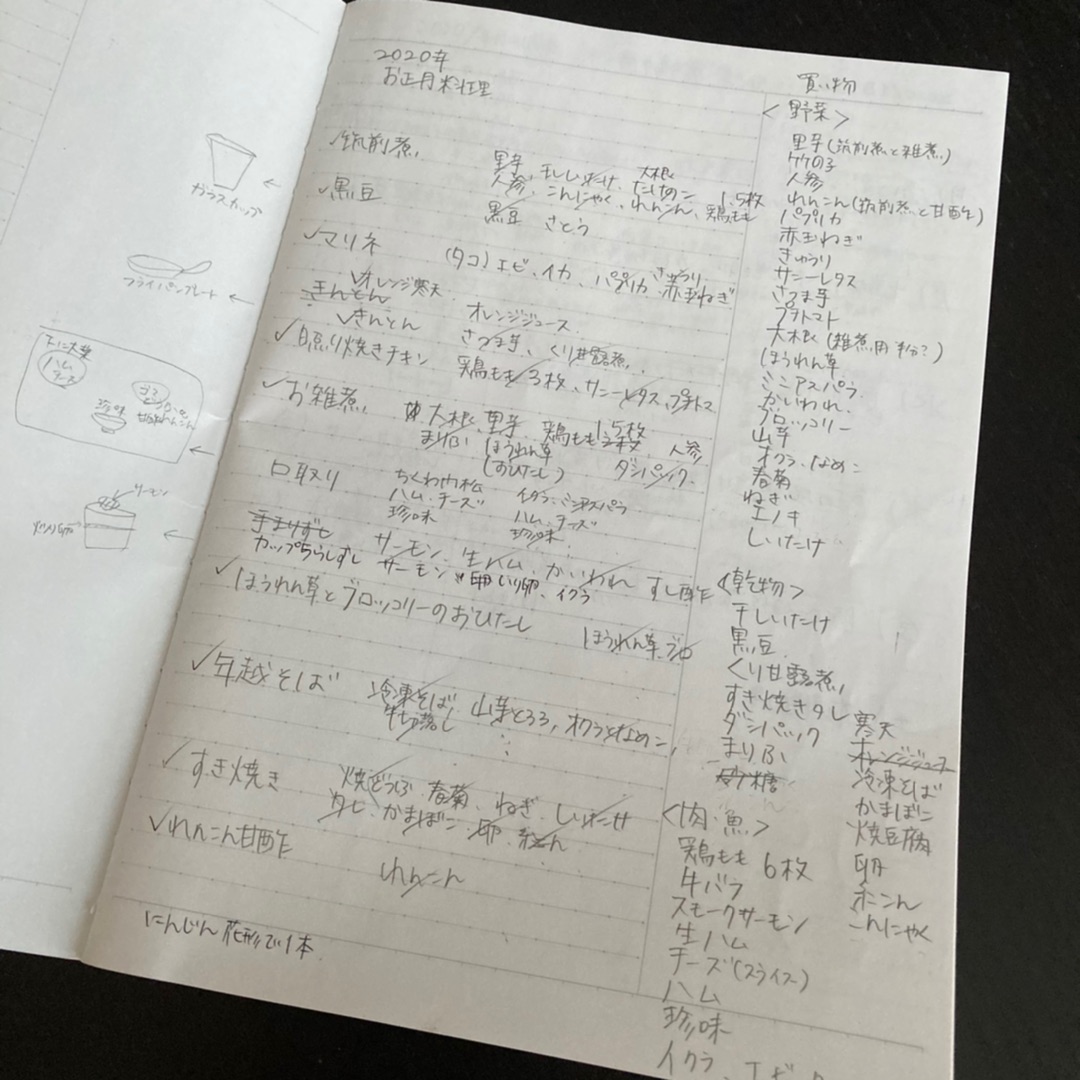 2020年
お正月料理
✓筑前煮
里芋、干ししいたけ、大根
人参、こんにゃく、れんこん、たけのこ 鶏もも 1.5枚
✓黒豆
黒豆 さとう
✓マリネ
(タコ)エビ、イカ、パプリカ、きゅうり 赤玉ねぎ
✓オレンジ寒天
オレンジジュース
きんとん
✓きんとん
さつま芋、くり甘露煮
✓照り焼きチキン
鶏もも 3枚、サニーレタス、プチトマ
✓お雑煮
大根、里芋、鶏もも 1.5枚、人参
まりふ ほうれん草 ダシパック
(おひたし)
口取り
ちくわ門松 イクラ、ミニアスパラ
ハム、チーズ ハム、チーズ
珍味 珍味
手まりずし
サーモン、生ハム、かいわれ すし酢
カップちらしずし
サーモン 卵 いり卵、イクラ
✓ほうれん草とブロッコリーのおひたし
ほうれん草、ブロ
✓年越そば
冷凍そば、山芋とろろ、オクラとなめこ、
牛切落し
✓すき焼き
焼どうふ、春菊、ねぎ、しいたけ
かまぼこ、卵、糸こん
✓れんこん甘酢
れんこん
にんじん 花形で1本
買い物
<野菜>
里芋(筑前煮と雑煮)
竹の子
人参
れんこん(筑前煮と甘酢)
パプリカ
赤玉ねぎ
きゅうり
サニーレタス
さつま芋
プチトマト
大根(雑煮用 半分?)
ほうれん草
ミニアスパラ
かいわれ
ブロッコリー
山芋
オクラ、なめこ
春菊
ねぎ
エノキ
しいたけ
<乾物>
干しいたけ
黒豆
くり甘露煮
すき焼きタレ
ダシパック
まりふ
砂糖
寒天
オレンジジュース
冷凍そば
かまぼこ
焼豆腐
卵
糸こん
こんにゃく
<肉・魚>
鶏もも 6枚
牛バラ
スモークサーモン
生ハム
チーズ(スライス)
ハム
珍味
イクラ、エビ
ガラスカップ
フライパンプレート
ハム
チーズ
珍味
サーモン